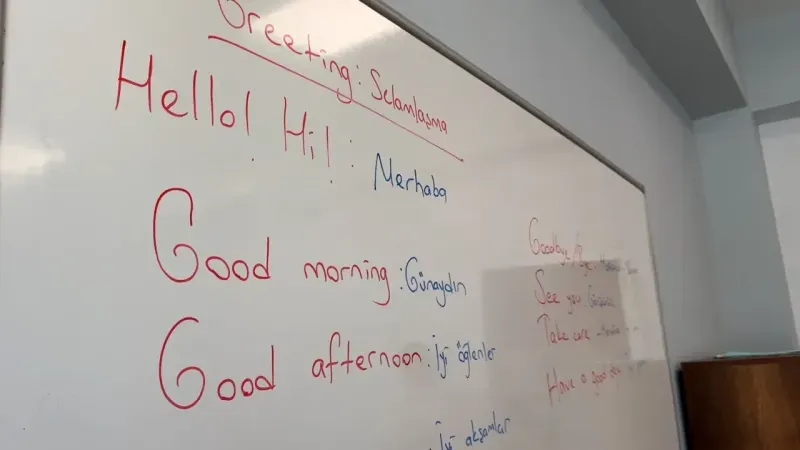 Greeting: Selamlaşma
Hello! Hi! : Merhaba
Good morning : Günaydın
Good afternoon : İyi öğlenler
: İyi akşamlar
Goodbye /
See you
Take care
Have a good